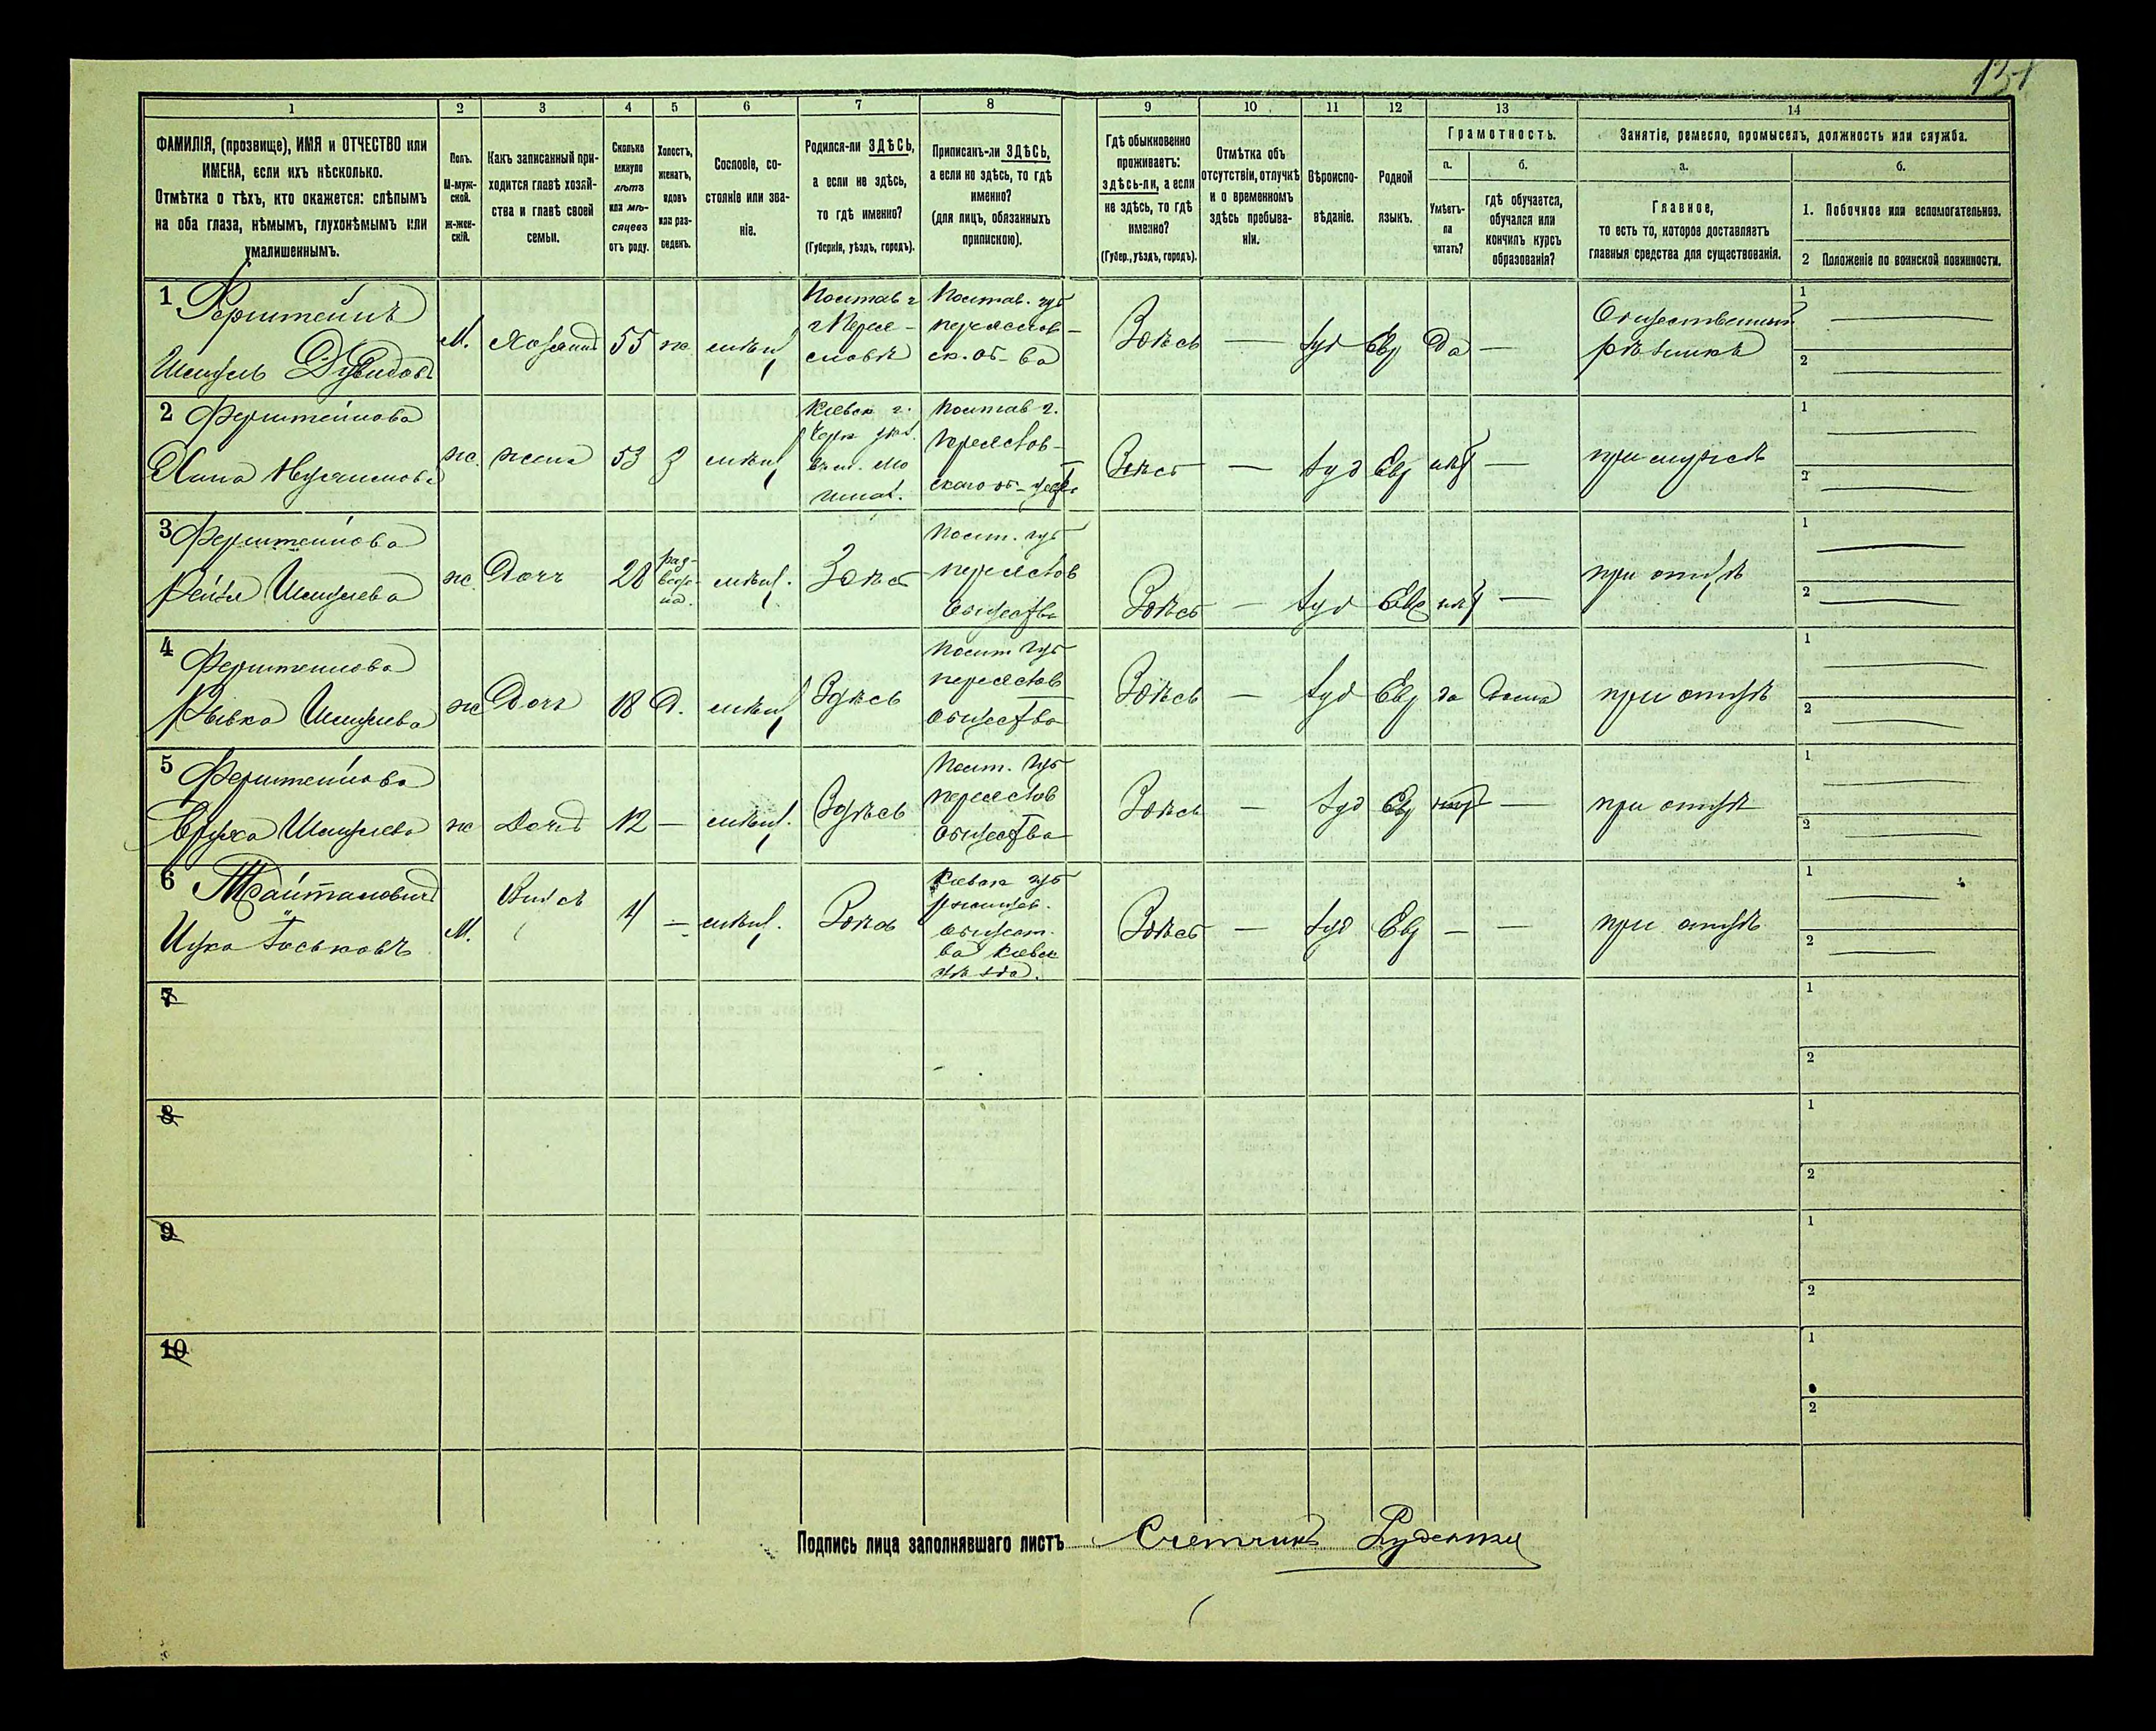 131
1 2 3 4 5 6 7 8 9 10 11 12 13 14
ФАМИЛІЯ, (прозвище), ИМЯ и ОТЧЕСТВО или
ИМЕНА, если ихъ нѣсколько.
Отмѣтка о тѣхъ, кто окажется: слѣпымъ
на оба глаза, нѣмымъ, глухонѣмымъ или
умалишеннымъ.
Полъ.
М-муж-
ской.
ж-жен-
скій.
Какъ записанный при-
ходится главѣ хозяй-
ства и главѣ своей
семьи.
Сколько
минуло
лѣтъ
или мѣ-
сяцевъ
отъ роду.
Холостъ,
женатъ,
вдовъ
или раз-
веденъ.
Сословіе, со-
стояніе или зва-
ніе.
Родился-ли ЗДѢСЬ,
а если не здѣсь,
то гдѣ именно?
(Губернія, уѣздъ, городъ).
Приписанъ-ли ЗДѢСЬ,
а если не здѣсь, то гдѣ
именно?
(для лицъ, обязанныхъ
припискою).
Гдѣ обыкновенно
проживаетъ:
здѣсь-ли, а если
не здѣсь, то гдѣ
именно?
(Губер., уѣздъ, городъ).
Отмѣтка объ
отсутствіи, отлучкѣ
и о временномъ
здѣсь пребыва-
ніи.
Вѣроиспо-
вѣданіе.
Родной
языкъ.
Грамотность.
а. б.
Умѣетъ-
ли
читать?
гдѣ обучается,
обучался или
кончилъ курсъ
образованія?
Занятіе, ремесло, промыселъ, должность или служба.
а. б.
Главное,
то есть то, которое доставляетъ
главныя средства для существованія.
1. Побочное или вспомогательное.
2 Положеніе по воинской повинности.
1 Ферштейнъ
Шмуль Дувидовъ
М. Хозяинъ 55 ж мѣщ
Полтав г
г Перея-
славѣ
Полтав. губ
переяслов-
ск. об-ва
Здѣсь — Іуд Евр Да —
Общественный
рѣзникъ
1
2
2 Ферштейнова
Хана
ж. жена 53 З мѣщ
Киевск г.
Полтав г.
переяслов-
ского об-
Здѣсь — Іуд Евр нѣт —
при мужѣ
1
2
3 Ферштейнова
Рейзя Шмулева
ж. Дочь 28
раз-
веде-
на.
мѣщ. Здѣсь
Полт. губ
переяслов
общества
Здѣсь — Іуд Евр нѣт —
при отцѣ
1
2
4 Ферштейнова
Рывка Шмулева
ж Дочь 18 Д. мѣщ Здѣсь
Полт губ
переяслов
общества
Здѣсь — Іуд Евр да Дома
при отцѣ
1
2
5 Ферштейнова
Шмулева
ж Дочь 12 — мѣщ. Здѣсь
Полт. губ
переяслов
общества
Здѣсь — Іуд Евр нѣт —
при отцѣ
1
2
6
Іоськовъ
М. Внукъ 4 — мѣщ. Здѣсь
Киевск губ
общест-
ва Киевск
уѣзда.
Здѣсь — Іуд Евр — —
при отцѣ
1
2
7
1
2
8
1
2
9
1
2
10
1
2
Подпись лица заполнявшаго листъ Счетчикъ